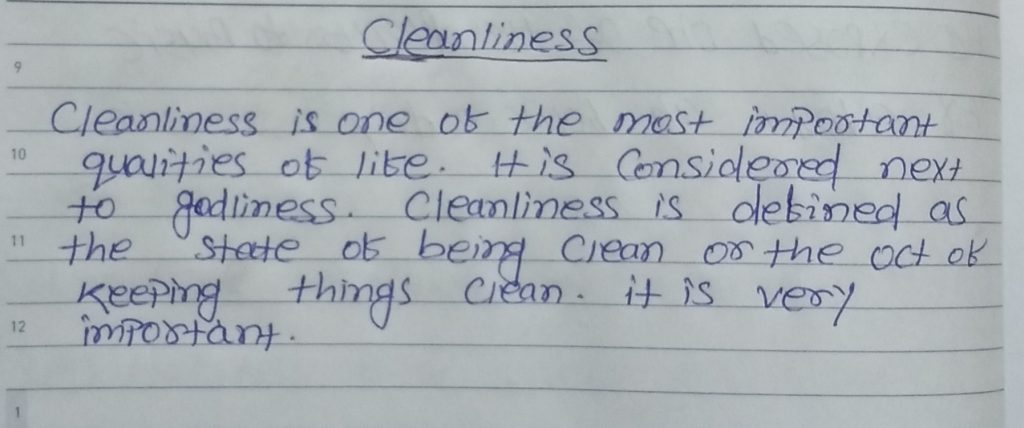 Cleanliness
9
Cleanliness is one of the most important
10 qualities of life. It is Considered next
to godliness. Cleanliness is defined as
11 the state of being clean or the act of
keeping things clean. it is very
12 important.
1